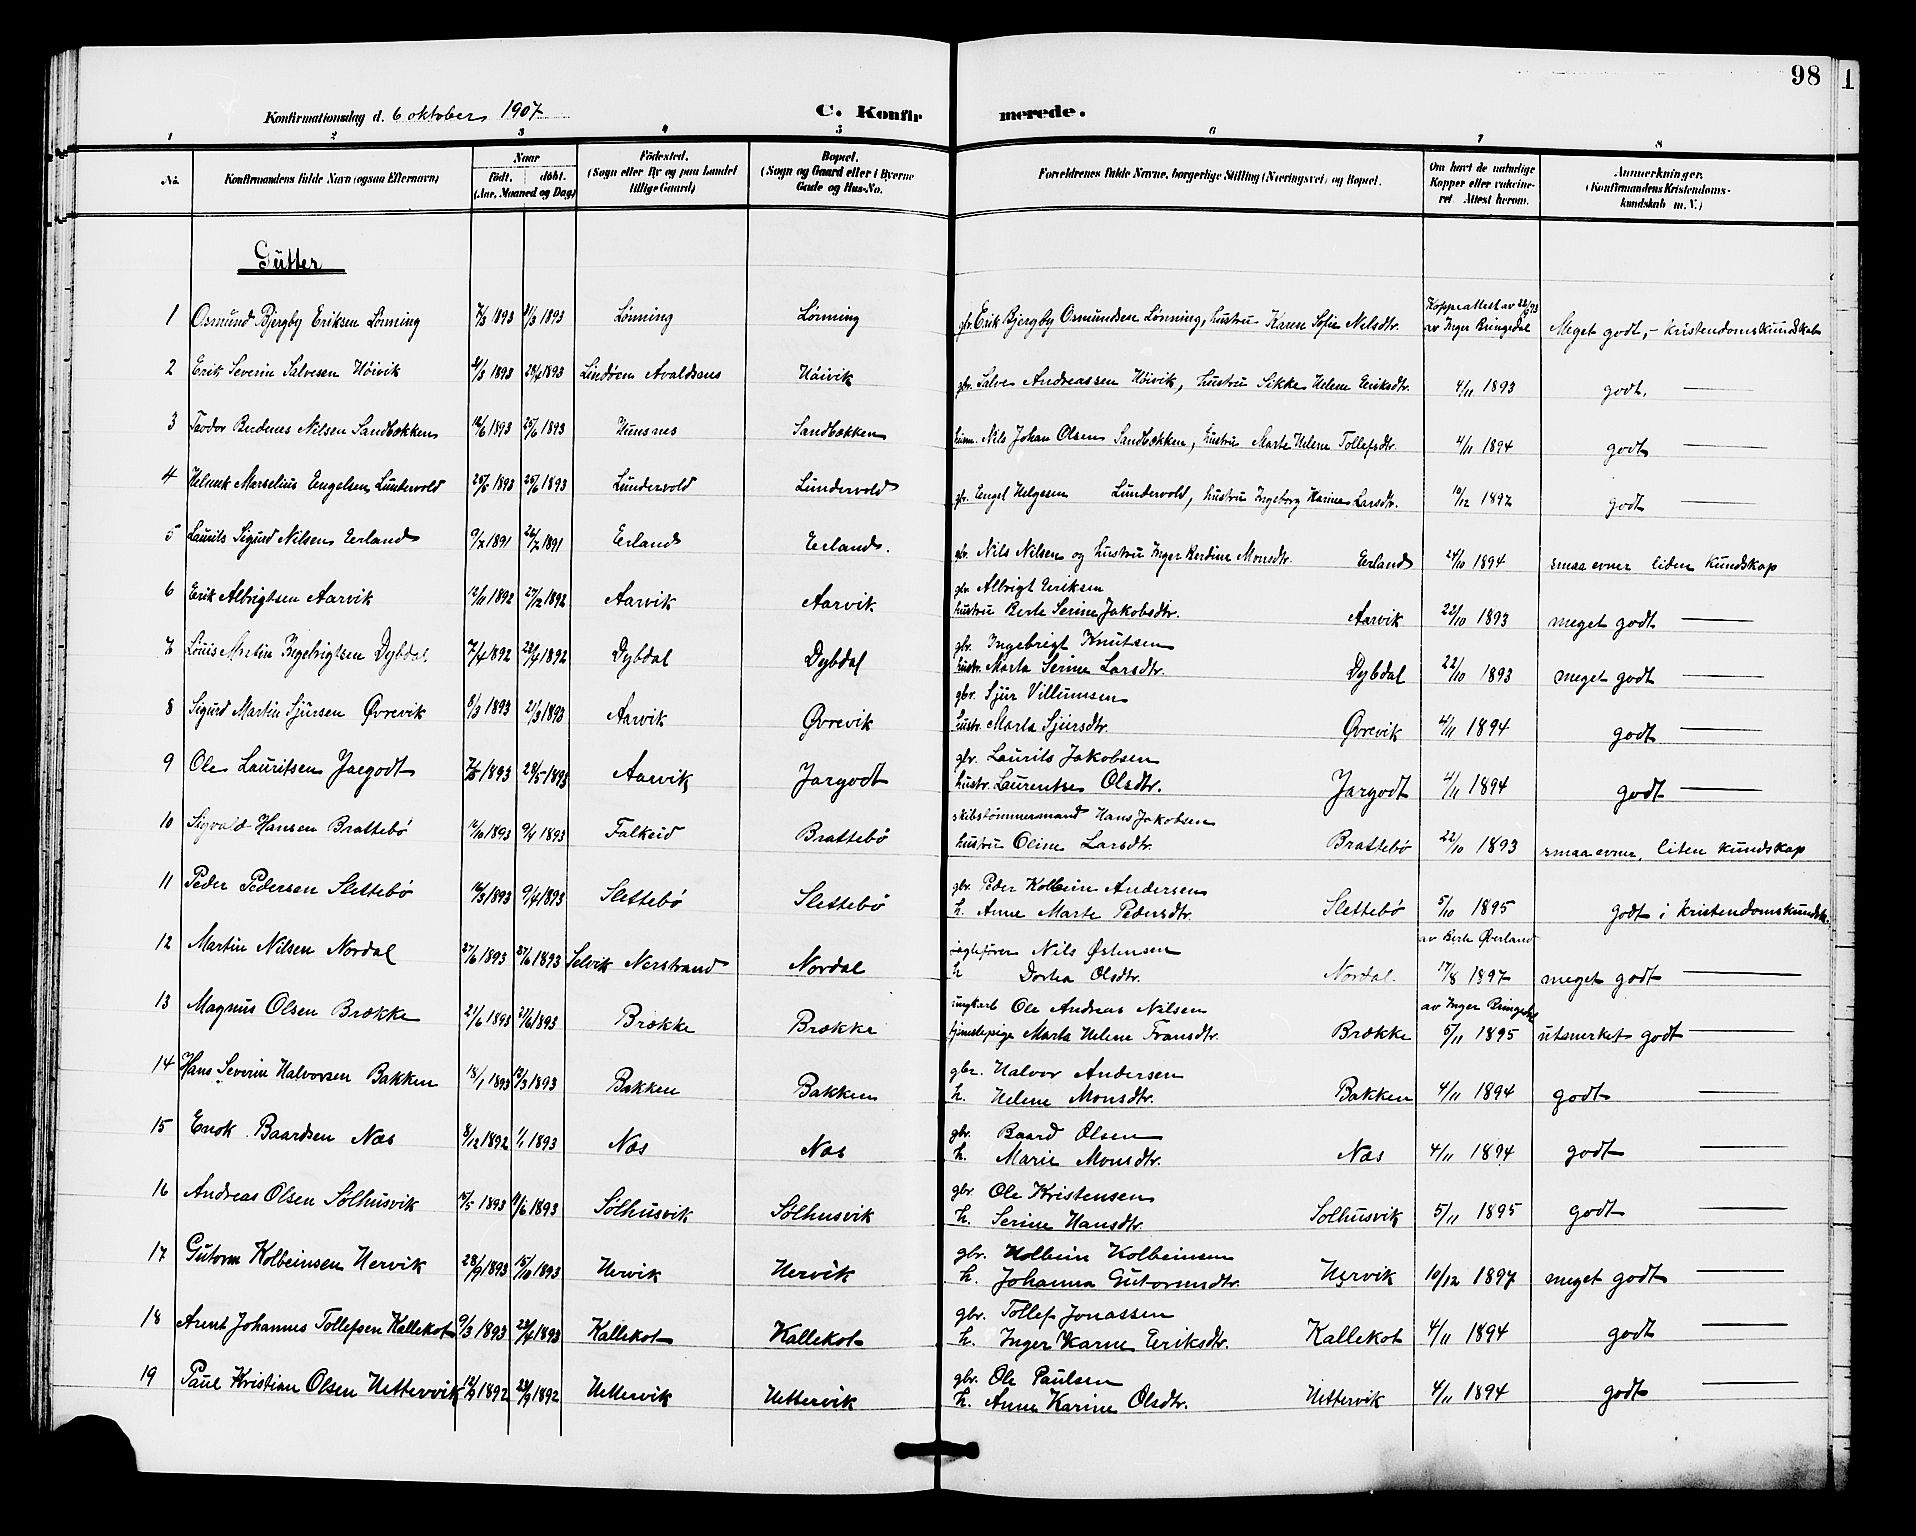 98
Konfirmationsdag d. 6 oktober 1907
C. Konfirmerede.
1 2 3 4 5 6 7 8
No. Konfirmandens fulde Navn (ogsaa Efternavn) Naar født. døbt. (Aar, Maaned og Dag) Fødested. (Sogn eller By og paa Landet tillige Gaard) Bopæl. (Sogn og Gaard eller i Byerne Gade og Hus-No. Forældrenes fulde Navne, borgerlige Stilling (Næringsvei) og Bopæl. Om havt de naturlige Kopper eller vakcineret Attest herom. Anmærkninger. (Konfirmandens Kristendomskundskab m. V.)
Gutter
1 Osmund Bjergby Eriksen Lönning 7/3 1893 31/3 1893 Lönning Lönning gbr. Erik Bjergby Osmundsen Lönning, hustru Karen Sofie Nilsdtr. Koppeattest av 22/9 93 av Inger Bringedal Meget godt, - kristendomskundskab
2 Erik Severin Salvesen Höivik 1893 1893 Avaldsnes Höivik gbr. Salve Andreassen Höivik, hustru Sikke Helene Eriksdtr. 4/11 1893 godt.
3 Berdines Nilsen Sandbækken 1893 25/6 1893 Hunsnes Sandbækken Nils Johan Olsen Sandbækken, hustru Marte Helene Tollefsdtr. 4/11 1894 godt
4 Marselius Engelsen Lundervold 1893 25/6 1893 Lundervold Lundervold gbr. Engel Helgesen Lundervold, hustru Ingeborg Karine Larsdtr. 10/12 1897 godt
5 Laurits Sigurd Nilsen Erland 9/2 1891 1891 Erland Erland. gbr. Nils Nilsen og hustru Inger Berdine Monsdtr. Erland 24/10 1894 smaa evner liden kundskap
6 Erik Albrigtsen Aarvik 12/11 1892 27/12 1892 Aarvik Aarvik. gbr Albrigt Eriksen
hustru Berte Serine Jakobsdtr. Aarvik 22/10 1893 meget godt
7 Louis Martin Ingebrigtsen Dybdal 7/4 1892 1892 Dybdal Dybdal gbr. Ingebrigt Knutsen
hustr. Marta Serine Larsdtr. Dybdal 22/10 1893 meget godt
8 Sigurd Martin Sjursen Øvrevik 8/3 1893 21/3 1893 Aarvik Øvrevik gbr. Sjur Villumsen
hustr. Marta Sjursdtr. Øvrevik 4/11 1894 godt
9 Ole Lauritsen Jargodt 1893 28/5 1893 Aarvik Jargodt gbr. Laurits Jakobsen
hustr. Laurentse Olsdtr. Jargodt 4/11 1894 godt
10 Sigvald Hansen Brattebö 1893 9/4 1893 Falkeid Brattebö skibstömmermand Hans Jakobsen
hustru Oline Larsdtr. Brattebö 22/10 1893 smaa evner, liten kundskap
11 Peder Pedersen Slettebö 1893 9/4 1893 Slettebö Slettebö gbr. Peder Kolbein Andersen
h. Anne Marte Pedersdtr. Slettebö 5/10 1895 godt i kristendomskundsk.
12 Martin Nilsen Nordal 27/6 1893 1893 Selvik Nerstrand Nordal jagtefører Nils Østensen
h Dortea Olsdtr. Nordal. av Berte Øverland 17/8 1897 meget godt
13 Magnus Olsen Brække 21/6 1893 1893 Brække Brække ungkarl Ole Andreas Nilsen
tjenestepige Marta Helene Fransdtr. Brække av Inger Bringedal 5/11 1895 utmerket godt
14 Hans Severin Halvorsen Bakken 18/1 1893 12/3 1893 Bakken Bakken gbr. Halvor Andersen
h. Helene Monsdtr. Bakken 4/11 1894 godt
15 Enok Baardsen Næs 8/12 1892 1/1 1893 Næs Næs gbr. Baard Olsen
h. Marie Monsdtr. Næs 4/11 1894 godt
16 Andreas Olsen Sölhusvik 1893 1893 Sölhusvik Sölhusvik gbr. Ole Kristensen
h. Serine Hansdtr. Solhusvik 5/11 1895 godt
17 Gutorm Kolbeinsen Hervik 28/9 1893 15/10 1893 Hervik Hervik gbr. Kolbein Kolbeinsen
h. Johanna Gutormsdtr. Hervik 10/12 1897 meget godt
18 Arent Johannes Tollefsen Kallekot 9/3 1893 23/4 1893 Kallekot Kallekot gbr. Tollef Jonassen
h. Inger Karine Eriksdtr. Kallekot 4/11 1894 godt
19 Paul Kristian Olsen Hettervik 12/9 1892 24/9 1892 Hettervik Hettervik gbr. Ole Paulsen
h. Anne Karine Olsdtr. Hettervik 4/11 1894 godt